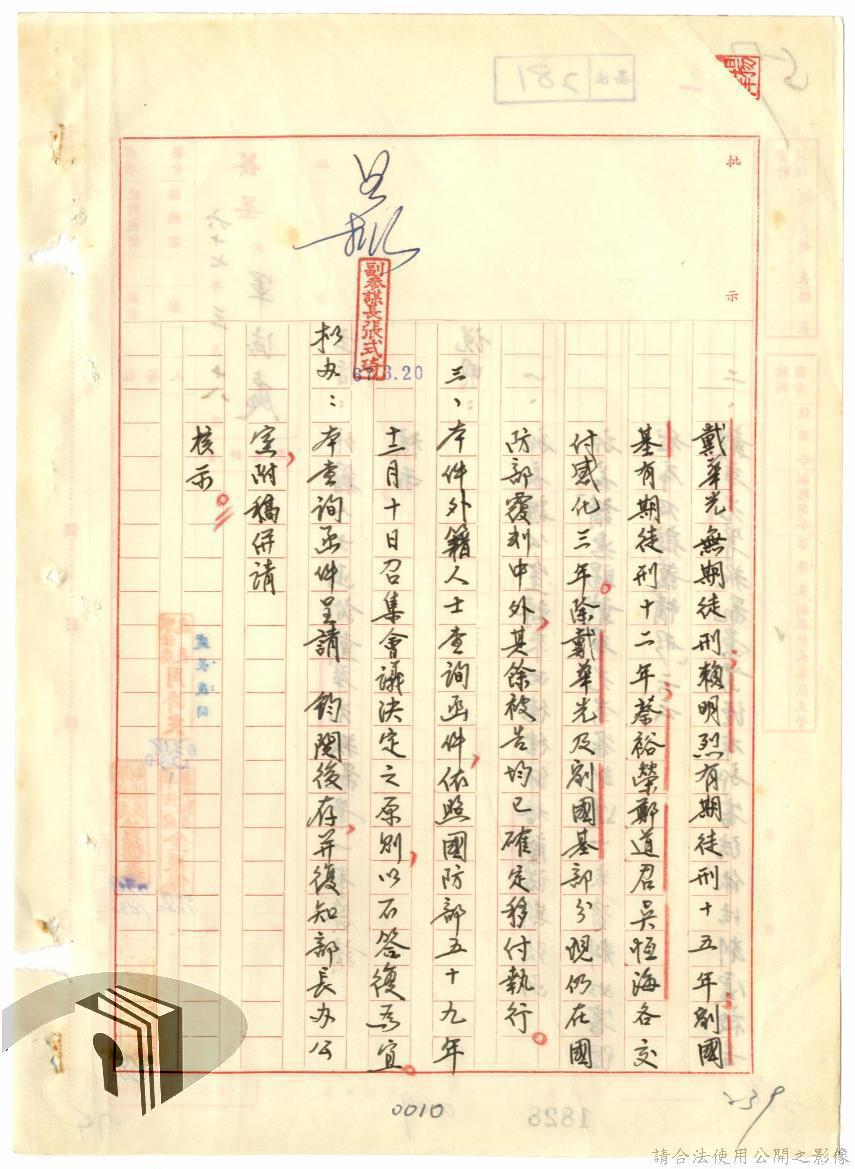 批示
戴華光無期徒刑賴明烈有期徒刑十五年劉國
基有期徒刑十二年蔡裕榮鄭道君吳恒海各交
付感化三年。除戴華光及劉國基部分現仍在國
防部覆判中外，其餘被告均已確定移付執行。
三、本件外籍人士查詢函件，依照國防部五十九年
十二月十日召集會議決定之原則，以不答復為宜。
拟办：本查詢函件呈請 鈞閱後存，并復知部長办公
室，附稿併請
核示。
副參謀長張式琦
67.3.20
0010
239
1828
281
請合法使用公開之影像